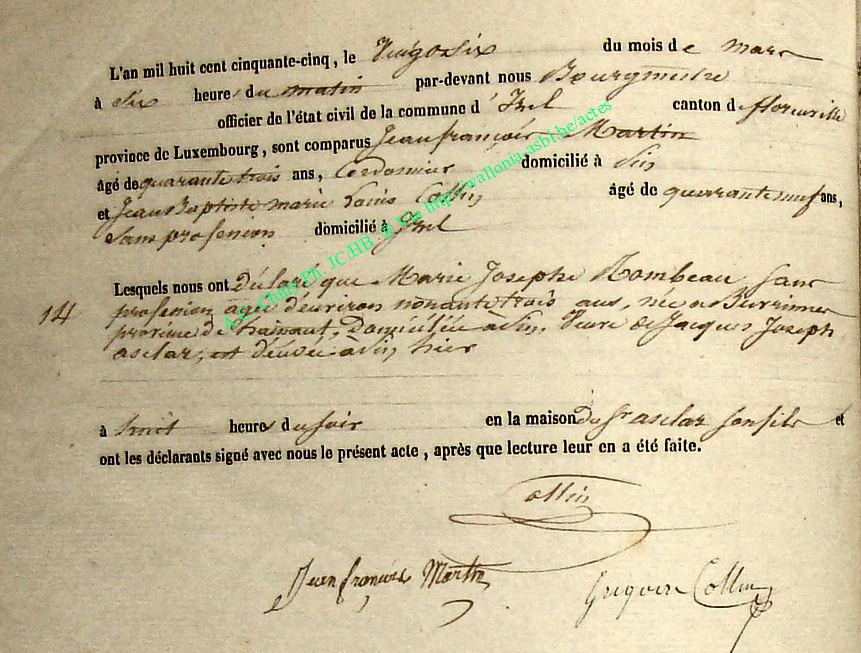 L'an mil huit cent cinquante-cinq, le vingt six du mois de mars
à six heures du matin par-devant nous Bourgmestre
officier de l'état civil de la commune d'Izel canton de florenville
province de Luxembourg, sont comparus Jean françois Martin
âgé de quarante trois ans, Cordonnier domicilié à Pin
et Jean Baptiste marie Louis Collin âgé de quarante neuf ans,
sans profession domicilié à Izel
Lesquels nous ont déclaré que Marie Josephe Rombeau, sans
14
profession agée d'environ nonante trois ans, née a
province de hainaut, domiciliée à Pin, Veuve de Jacques Joseph
asclar, est décédée à Pin hier
à huit heures du soir en la maison du Sr asclar son fils et
ont les déclarants signé avec nous le présent acte, après que lecture leur en a été faite.
Collin
Jean françois Martin
Gregoire Collin
Ph. JC.HB. Via http://wallonia.asbl.be/actes